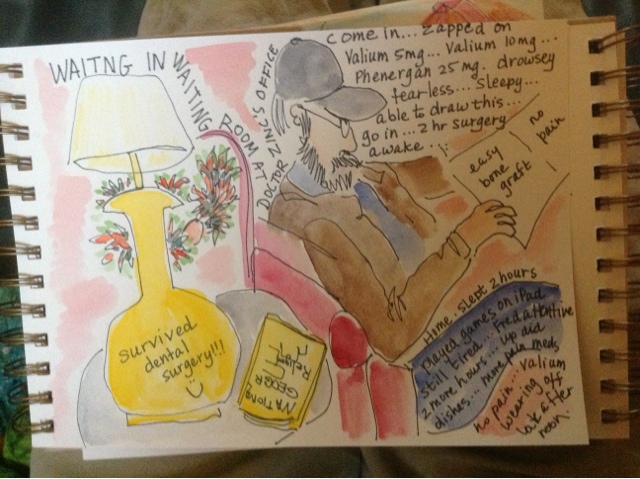 WAITNG IN WAITING
ROOM AT
DOCTOR
OFFICE
come in... zapped on
Valium 5mg... Valium 10mg...
Phenergan 25 mg. drowsey
fearless... sleepy...
able to draw this...
go in... 2 hr surgery
awake...
easy
bone
graft
no
pain
survived
dental
surgery!!!
NATIONAL
GEOGR
Home. slept 2 hours
played games on iPad
still tired... Fred attentive
2 more hours... up did
dishes... more pain meds
no pain... Valium
wearing off
late after
noon.